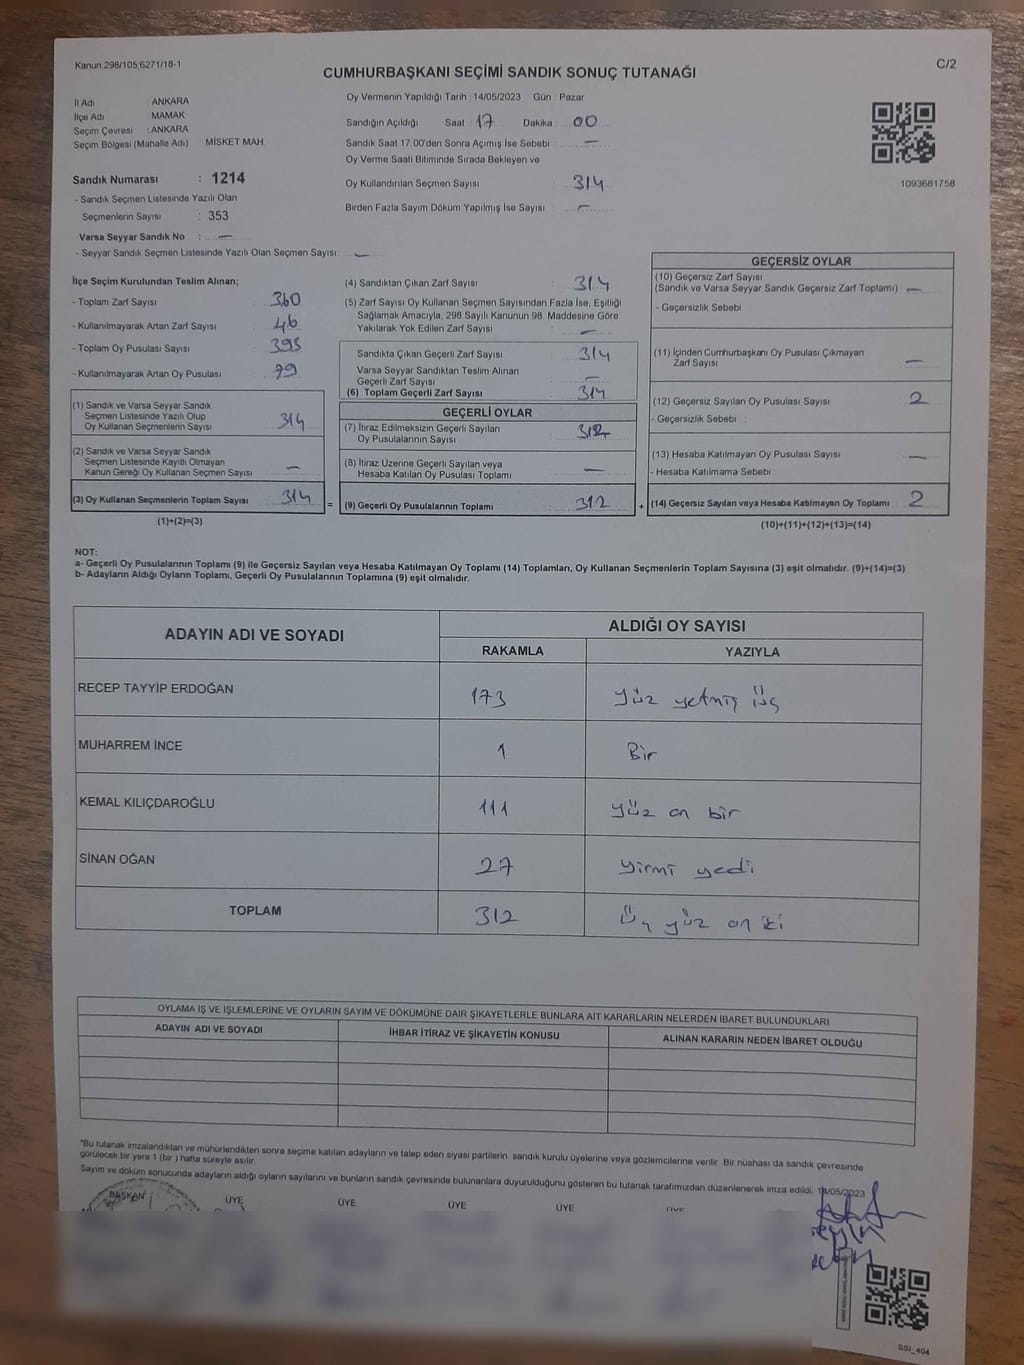 Kanun;298/105,6271/18-1
C/2
CUMHURBAŞKANI SEÇİMİ SANDIK SONUÇ TUTANAĞI
İl Adı ANKARA
İlçe Adı : MAMAK
Seçim Çevresi : ANKARA
Seçim Bölgesi (Mahalle Adı) : MİSKET MAH.
Oy Vermenin Yapıldığı Tarih : 14/05/2023 Gün : Pazar
Sandığın Açıldığı Saat : 17 Dakika : 00
Sandık Saat 17.00'den Sonra Açımış İse Sebebi : —
Oy Verme Saati Bitiminde Sırada Bekleyen ve
Oy Kullandırılan Seçmen Sayısı : 314
Birden Fazla Sayım Döküm Yapılmış İse Sayısı : —
1093681758
Sandık Numarası : 1214
- Sandık Seçmen Listesinde Yazılı Olan
Seçmenlerin Sayısı : 353
Varsa Seyyar Sandık No : —
- Seyyar Sandık Seçmen Listesinde Yazılı Olan Seçmen Sayısı: —
İlçe Seçim Kurulundan Teslim Alınan;
- Toplam Zarf Sayısı : 360
- Kullanılmayarak Artan Zarf Sayısı : 46
- Toplam Oy Pusulası Sayısı : 393
- Kullanılmayarak Artan Oy Pusulası : 79
(1) Sandık ve Varsa Seyyar Sandık
Seçmen Listesinde Yazılı Olup
Oy Kullanan Seçmenlerin Sayısı : 314
(2) Sandık ve Varsa Seyyar Sandık
Seçmen Listesinde Kayıtlı Olmayan
Kanun Gereği Oy Kullanan Seçmen Sayısı : —
(3) Oy Kullanan Seçmenlerin Toplam Sayısı : 314
(1)+(2)=(3)
(4) Sandıktan Çıkan Zarf Sayısı : 314
(5) Zarf Sayısı Oy Kullanan Seçmen Sayısından Fazla İse, Eşitliği
Sağlamak Amacıyla, 298 Sayılı Kanunun 98. Maddesine Göre
Yakılarak Yok Edilen Zarf Sayısı : —
Sandıkta Çıkan Geçerli Zarf Sayısı : 314
Varsa Seyyar Sandıktan Teslim Alınan
Geçerli Zarf Sayısı : —
(6) Toplam Geçerli Zarf Sayısı : 314
GEÇERLİ OYLAR
(7) İtiraz Edilmeksizin Geçerli Sayılan
Oy Pusulalarının Sayısı : 312
(8) İtiraz Üzerine Geçerli Sayılan veya
Hesaba Katılan Oy Pusulası Toplamı : —
= (9) Geçerli Oy Pusulalarının Toplamı : 312 +
GEÇERSİZ OYLAR
(10) Geçersiz Zarf Sayısı
(Sandık ve Varsa Seyyar Sandık Geçersiz Zarf Toplamı) : —
- Geçersizlik Sebebi
(11) İçinden Cumhurbaşkanı Oy Pusulası Çıkmayan
Zarf Sayısı : —
(12) Geçersiz Sayılan Oy Pusulası Sayısı : 2
- Geçersizlik Sebebi :
(13) Hesaba Katılmayan Oy Pusulası Sayısı : —
- Hesaba Katılmama Sebebi :
(14) Geçersiz Sayılan veya Hesaba Katılmayan Oy Toplamı : 2
(10)+(11)+(12)+(13)=(14)
NOT:
a- Geçerli Oy Pusulalarının Toplamı (9) ile Geçersiz Sayılan veya Hesaba Katılmayan Oy Toplamı (14) Toplamları, Oy Kullanan Seçmenlerin Toplam Sayısına (3) eşit olmalıdır. (9)+(14)=(3)
b- Adayların Aldığı Oyların Toplamı, Geçerli Oy Pusulalarının Toplamına (9) eşit olmalıdır.
ADAYIN ADI VE SOYADI ALDIĞI OY SAYISI
RAKAMLA YAZIYLA
RECEP TAYYİP ERDOĞAN 173 Yüz yetmiş üç
MUHARREM İNCE 1 Bir
KEMAL KILIÇDAROĞLU 111 Yüz on bir
SİNAN OĞAN 27 Yirmi yedi
TOPLAM 312 Üç yüz on iki
OYLAMA İŞ VE İŞLEMLERİNE VE OYLARIN SAYIM VE DÖKÜMÜNE DAİR ŞİKAYETLERLE BUNLARA AİT KARARLARIN NELERDEN İBARET BULUNDUKLARI
ADAYIN ADI VE SOYADI İHBAR İTİRAZ VE ŞİKAYETİN KONUSU ALINAN KARARIN NEDEN İBARET OLDUĞU
*Bu tutanak imzalandıktan ve mühürlendikten sonra seçime katılan adayların ve talep eden siyasi partilerin sandık kurulu üyelerine veya gözlemcilerine verilir. Bir nüshası da sandık çevresinde
görülecek bir yere 1 (bir ) hafta süreyle asılır.
Sayım ve döküm sonucunda adayların aldığı oyların sayılarını ve bunların sandık çevresinde bulunanlara duyurulduğunu gösteren bu tutanak tarafımızdan düzenlenerek imza edildi. 14/05/2023
BAŞKAN ÜYE ÜYE ÜYE ÜYE ÜYE
SSI_404